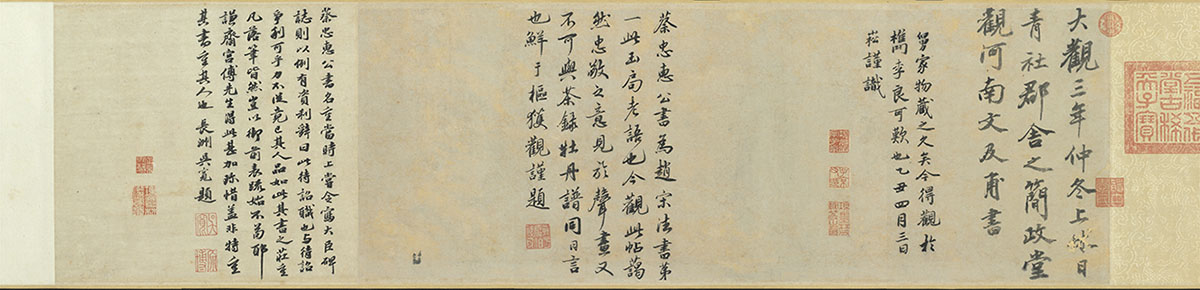 大觀三年仲冬上澣日
青社郡舍之簡政堂
觀河南文及甫書
舅家物藏之久矣今得觀於
檇李良可歎也乙丑四月三日
崧謹識
蔡忠惠公書為趙宋法書第
一此玉局老語也今觀此帖藹
然忠敬之意見於聲畫又
不可與茶錄牡丹譜同日言
也鮮于樞獲觀謹題
蔡忠惠公書名重當時上嘗令寫大臣碑
誌則以例有資利辭曰此待詔職也与待詔
爭利可乎力不從竟已其人品如此其書之莊重
凡語筆皆然豈以御前表疏始不苟耶
謙齋宮傅先生得此甚加珍惜蓋非特重
其書重其人也 長洲吳寬題